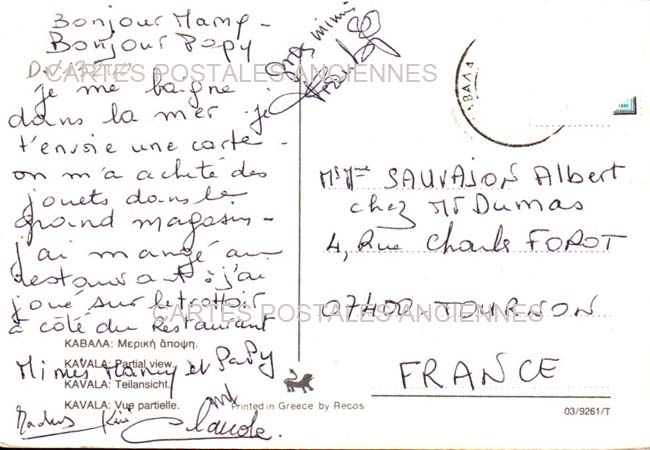 Bonjour Mamy -
Bonjour Papy
je me baigne
dans la mer je
t'envoie une carte -
on m'a acheté des
jouets dans le
grand magasin -
j'ai mangé au
Restaurant : j'ai
joué sur le trottoir
à côté du Restaurant
Mimies Mamy et Papy
Claude.
gros mimis
CARTES POSTALES ANCIENNES
CARTES POSTALES ANCIENNES
ΚΑΒΑΛΑ: Μερική ἄποψη.
KAVALA: Partial view.
KAVALA: Teilansicht.
KAVALA: Vue partielle.
Printed in Greece by Recos
ΒΑΛΑ
Mr Mme SAUVAJON Albert
chez Mr Dumas
4, Rue Charles FOROT
07400 - TOURNON
FRANCE
03/9261/T